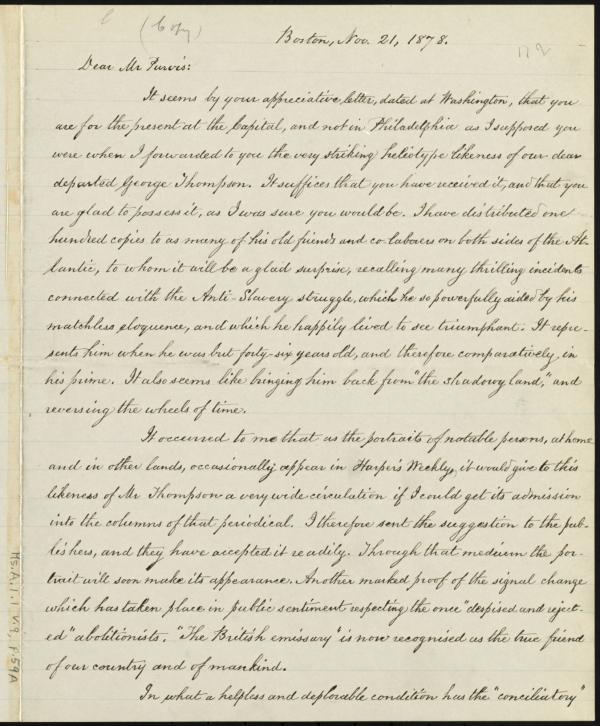 (Copy)
Boston, Nov. 21, 1878.
Dear Mr Purvis:
It seems by your appreciative letter, dated at Washington, that you
are for the present at the Capital, and not in Philadelphia as I supposed you
were when I forwarded to you the very striking heliotype likeness of our dear
departed George Thompson. It suffices that you have received it, and that you
are glad to possess it, as I was sure you would be. I have distributed one
hundred copies to as many of his old friends and co-laborers on both sides of the At-
lantic, to whom it will be a glad surprise, recalling many thrilling incidents
connected with the Anti-Slavery struggle, which he so powerfully aided by his
matchless eloquence, and which he happily lived to see triumphant. It repre-
sents him when he was but forty-six years old, and therefore comparatively in
his prime. It also seems like bringing him back from "the shadowy land," and
reversing the wheels of time.
It occurred to me that as the portraits of notable persons, at home
and in other lands, occasionally appear in Harper's Weekly, it would give to this
likeness of Mr Thompson a very wide circulation if I could get its admission
into the columns of that periodical. I therefore sent the suggestion to the pub-
lishers, and they have accepted it readily. Through that medium the por-
trait will soon make its appearance. Another marked proof of the signal change
which has taken place in public sentiment respecting the once "despised and reject-
ed" abolitionists. "The British emissary" is now recognised as the true friend
of our country and of mankind.
In what a helpless and deplorable condition has the "conciliatory"
Ms.A.1.1 v.9, p.59A